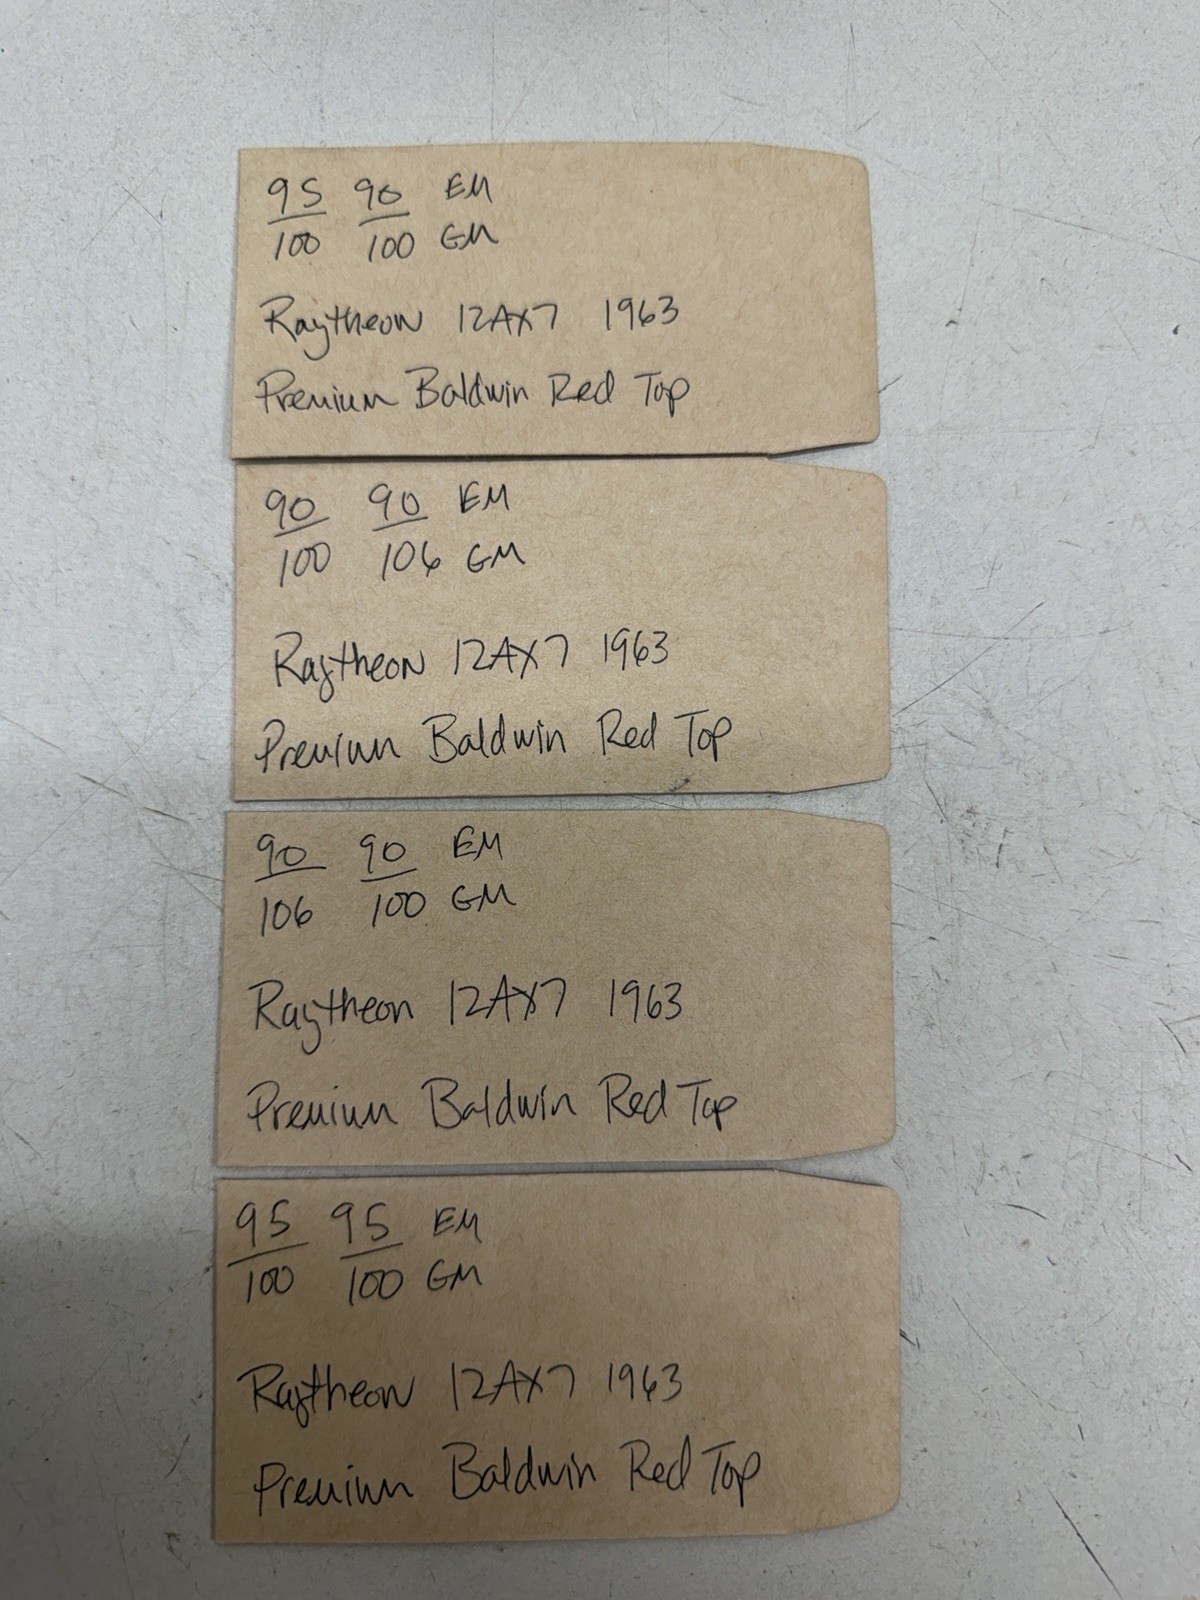 95 90 EM
100 100 GM
Raytheon 12AX7 1963
Premium Baldwin Red Top
90 90 EM
100 106 GM
Raytheon 12AX7 1963
Premium Baldwin Red Top
90 90 EM
106 100 GM
Raytheon 12AX7 1963
Premium Baldwin Red Top
95 95 EM
100 100 GM
Raytheon 12AX7 1963
Premium Baldwin Red Top